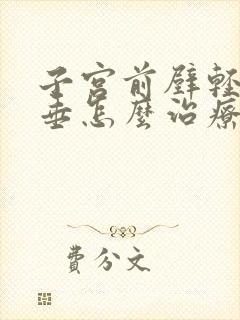 子宫前壁轻
垂怎麼治療
費分文